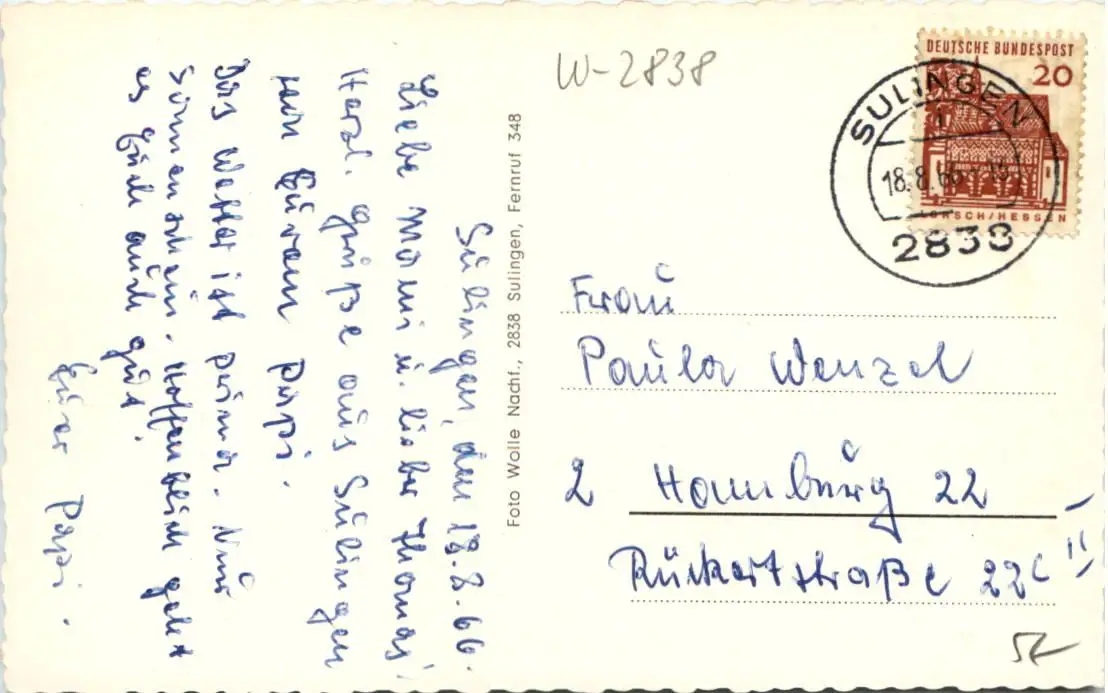 Sulingen, den 18.8.66.
Liebe Mami u. lieber Thomas!
Herzl. Grüße aus Sulingen
von Eurem Papi.
Das Wetter ist prima. Nur
Sonnenschein. Hoffentlich geht
es Euch auch gut.
Euer Papi.
Foto Wolle Nachf., 2838 Sulingen, Fernruf 348
W-2838
DEUTSCHE BUNDESPOST
20
LORSCH/HESSEN
SULINGEN
1
18.8.66
2838
Frau
Paula Wenzel
2 Hamburg 22
Rückertstraße 22c II